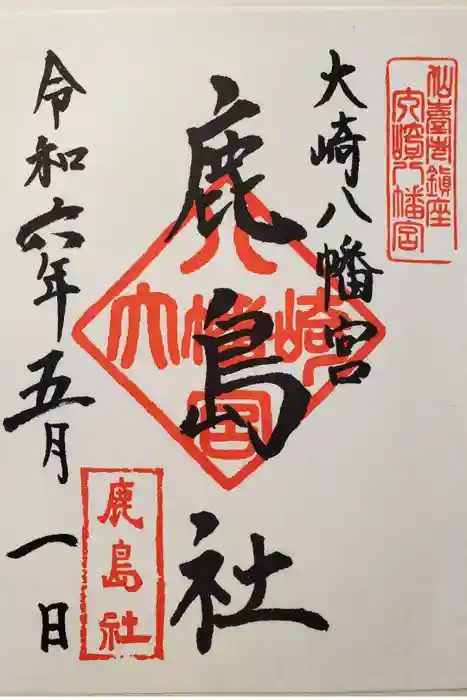 仙臺市鎮座
大崎八幡宮
大崎八幡宮
鹿島社
大崎八幡宮
鹿島社
令和六年五月一日